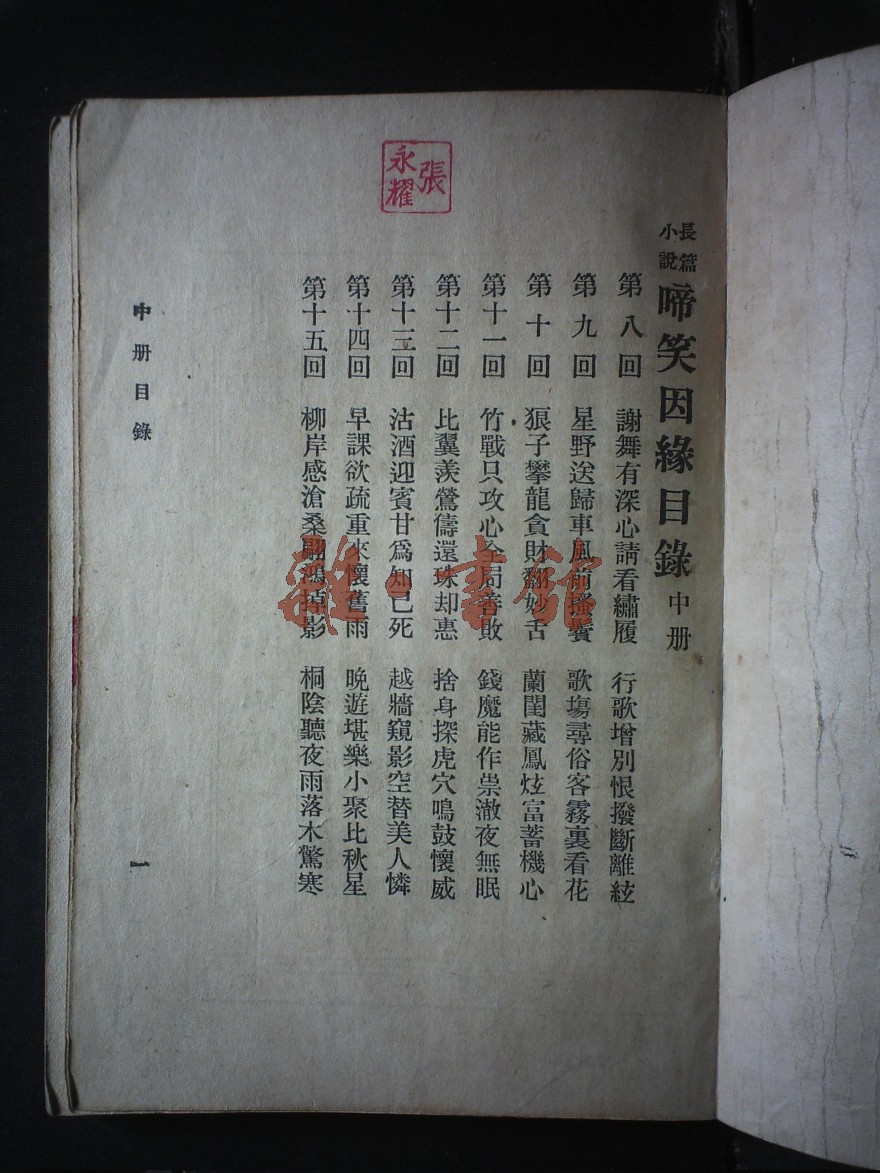 張永耀
長篇小說 啼笑因緣目錄 中册
第八回 謝舞有深心請看繡履 行歌增別恨撥斷離絃
第九回 星野送歸車風前搔鬢 歌塲尋俗客霧裏看花
第十回 狠子攀龍貪財翻妙舌 蘭閨藏鳳炫富蓄機心
第十一回 竹戰只攻心全局善敗 錢魔能作祟澈夜無眠
第十二回 比翼羨鶯儔還珠却惠 捨身探虎穴鳴鼓懷威
第十三回 沽酒迎賓甘爲知己死 越牆窺影空替美人憐
第十四回 早課欲疏重來懷舊雨 晚遊堪樂小聚比秋星
第十五回 柳岸感滄桑翩鴻掉影 桐陰聽夜雨落木驚寒
中册目錄
一
雜·書館